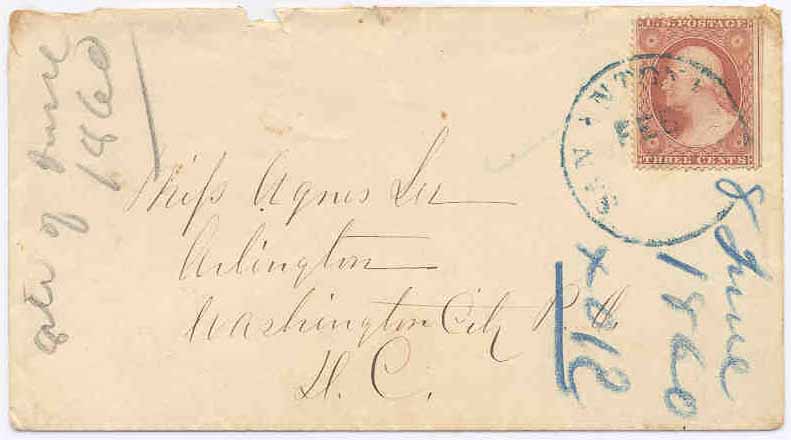 8th of June
1860
U.S. POSTAGE
THREE CENTS
SAN ANTONI
Miss Agnes Lee
Arlington
Washington City P. O.
D. C.
8 June
1860